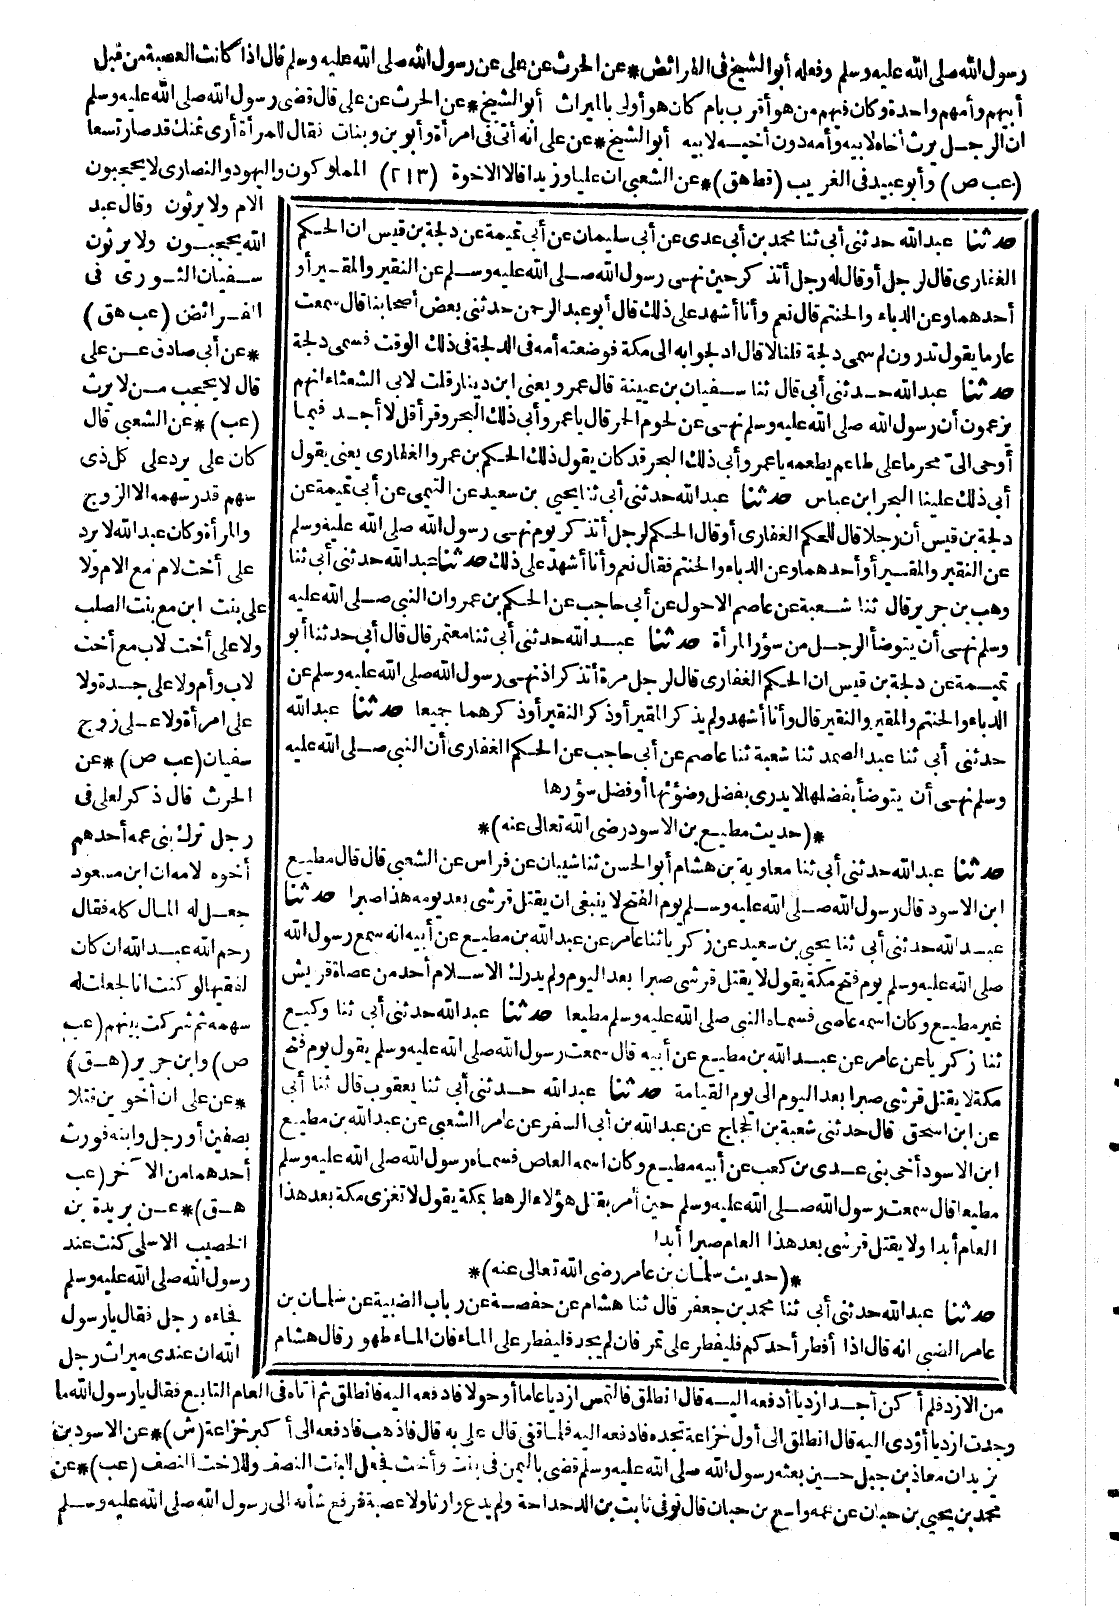 رسول الله صلى الله عليه وسلم وفعله أبو الشيخ فى الفرائض * عن الحرث عن على عن رسول الله صلى الله عليه وسلم قال اذا كانت العصبة من قبل
أبيهم وأمهم واحدة وكان فيهم من هو أقرب بام كان هو أولى بالميراث أبو الشيخ * عن الحرث عن على قال قضى رسول الله صلى الله عليه وسلم
ان الرجل يرث أخاه لابيه وأمه دون أخيه لابيه أبو الشيخ * عن على انه أتى فى امرأة وأبوين وبنات فقال للمرأة أرى ثمنك قد صار تسعا
(عب ص) وأبو عبيد فى الغريب (قط هق) * عن الشعبى ان عليا وزيدا قالا الاخوة (٢١٣) المملوكون واليهود والنصارى لا يحجبون
الام ولا يرثون وقال عبد
الله يحجبون ولا يرثون
سفيان الثورى فى
الفرائض (عب هق)
* عن أبى صادق عن على
قال لا يحجب من لا يرث
(عب) * عن الشعبى قال
كان على يرد على كل ذى
سهم قدر سهمه الا الزوج
والمرأة وكان عبد الله لا يرد
على أخت لام مع الام ولا
على بنت ابن مع بنت الصلب
ولا على أخت لاب مع أخت
لاب وأم ولا على جدة ولا
على امرأة ولا على زوج
سفيان (عب ص) * عن
الحرث قال ذكر لعلى فى
رجل ترك بنى عمه أحدهم
أخوه لامه ان ابن مسعود
جعل له المال كله فقال
رحم الله عبد الله ان كان
لفقيها لو كنت انا لجعلت له
سهمه ثم شركت بينهم (عب
ص) وابن جرير (هق)
* عن على ان أخوين قتلا
بصفين أو رجل وابنه فورث
أحدهما من الآخر (عب
هق) * عن بريدة بن
الخصيب الاسلمى كنت عند
رسول الله صلى الله عليه وسلم
فجاءه رجل فقال يا رسول
الله ان عندى ميراث رجل
حدثنا عبد الله حدثنى أبى ثنا محمد بن أبى عدى عن أبى سليمان عن أبى تميمة عن دلجة بن قيس ان الحكم
الغفارى قال لرجل أو قال له رجل أتذكر حين نهى رسول الله صلى الله عليه وسلم عن النقير والمقير أو
أحدهما وعن الدباء والحنتم قال نعم وأنا أشهد على ذلك قال أبو عبد الرحمن حدثنى بعض أصحابنا قال سمعت
عارما يقول تدرون لم سمى دلجة قلنا لا قال ادلجوا به الى مكة فوضعته أمه فى الدلجة فى ذلك الوقت فسمى دلجة
حدثنا عبد الله حدثنى أبى قال ثنا سفيان بن عيينة قال عمرو يعنى ابن دينار قلت لابى الشعثاء انهم
يزعمون أن رسول الله صلى الله عليه وسلم نهى عن لحوم الحمر قال يا عمرو أبى ذلك البحر وقرأ قل لا أجد فيما
أوحى الى محرما على طاعم يطعمه يا عمرو أبى ذلك البحر قد كان يقول ذلك الحكم بن عمرو الغفارى يعنى يقول
أبى ذلك علينا البحر ابن عباس حدثنا عبد الله حدثنى أبى ثنا يحيى بن سعيد عن التيمى عن أبى تميمة عن
دلجة بن قيس أن رجلا قال للحكم الغفارى أو قال الحكم لرجل أتذكر يوم نهى رسول الله صلى الله عليه وسلم
عن النقير والمقير أو أحدهما وعن الدباء والحنتم فقال نعم وأنا أشهد على ذلك حدثنا عبد الله حدثنى أبى ثنا
وهب بن جرير قال ثنا شعبة عن عاصم الاحول عن أبى حاجب عن الحكم بن عمرو ان النبى صلى الله عليه
وسلم نهى أن يتوضأ الرجل من سؤر المرأة حدثنا عبد الله حدثنى أبى ثنا معتمر قال قال أبى حدثنا أبو
تميمة عن دلجة بن قيس ان الحكم الغفارى قال لرجل مرة أتذكر اذ نهى رسول الله صلى الله عليه وسلم عن
الدباء والحنتم والمقير والنقير قال وأنا أشهد ولم يذكر المقير أو ذكر النقير أو ذكرهما جميعا حدثنا عبد الله
حدثنى أبى ثنا عبد الصمد ثنا شعبة ثنا عاصم عن أبى حاجب عن الحكم الغفارى أن النبى صلى الله عليه
وسلم نهى أن يتوضأ بفضلها لا يدرى بفضل وضوئها أو فضل سؤرها
* (حديث مطيع بن الاسود رضى الله تعالى عنه) *
حدثنا عبد الله حدثنى أبى ثنا معاوية بن هشام أبو الحسن ثنا شيبان عن فراس عن الشعبى قال قال مطيع
ابن الاسود قال رسول الله صلى الله عليه وسلم يوم الفتح لا ينبغى ان يقتل قرشى بعد يومه هذا صبرا حدثنا
عبد الله حدثنى أبى ثنا يحيى بن سعيد عن زكريا ثنا عامر عن عبد الله بن مطيع عن أبيه انه سمع رسول الله
صلى الله عليه وسلم يوم فتح مكة يقول لا يقتل قرشى صبرا بعد اليوم ولم يدرك الاسلام أحد من عصاة قريش
غير مطيع وكان اسمه عاصى فسماه النبى صلى الله عليه وسلم مطيعا حدثنا عبد الله حدثنى أبى ثنا وكيع
ثنا زكريا عن عامر عن عبد الله بن مطيع عن أبيه قال سمعت رسول الله صلى الله عليه وسلم يقول يوم فتح
مكة لا يقتل قرشى صبرا بعد اليوم الى يوم القيامة حدثنا عبد الله حدثنى أبى ثنا يعقوب قال ثنا أبى
عن ابن اسحق قال حدثنى شعبة بن الحجاج عن عبد الله بن أبى السفر عن عامر الشعبى عن عبد الله بن مطيع
ابن الاسود أخى بنى عدى بن كعب عن أبيه مطيع وكان اسمه العاص فسماه رسول الله صلى الله عليه وسلم
مطيعا قال سمعت رسول الله صلى الله عليه وسلم حين أمر بقتل هؤلاء الرهط بمكة يقول لا تغزى مكة بعد هذا
العام أبدا ولا يقتل قرشى بعد هذا العام صبرا أبدا
* (حديث سلمان بن عامر رضى الله تعالى عنه) *
حدثنا عبد الله حدثنى أبى ثنا محمد بن جعفر قال ثنا هشام عن حفصة عن رباب الضبية عن سلمان بن
عامر الضبى انه قال اذا أفطر أحدكم فليفطر على تمر فان لم يجد فليفطر على الماء فان الماء طهور قال هشام
من الازد فلم أكن أجد ازديا أدفعه اليه قال انطلق فالتمس ازديا عاما أو حولا فادفعه اليه فانطلق ثم أتاه فى العام التابع فقال يا رسول الله ما
وجدت ازديا أؤدى اليه قال انطلق الى أول خزاعة تجده فادفعه اليه فلما قفى قال على به قال فاذهب فادفعه الى أكبر خزاعة (ش) * عن الاسود بن
يزيد ان معاذ بن جبل حين بعثه رسول الله صلى الله عليه وسلم قضى باليمن فى بنت وأخت فجعل للبنت النصف وللاخت النصف (عب) * عن
محمد بن يحيى بن حبان عن عمه واسع بن حبان قال توفى ثابت بن الدحداحة ولم يدع وارثا ولا عصبة فرفع شأنه الى رسول الله صلى الله عليه وسلم